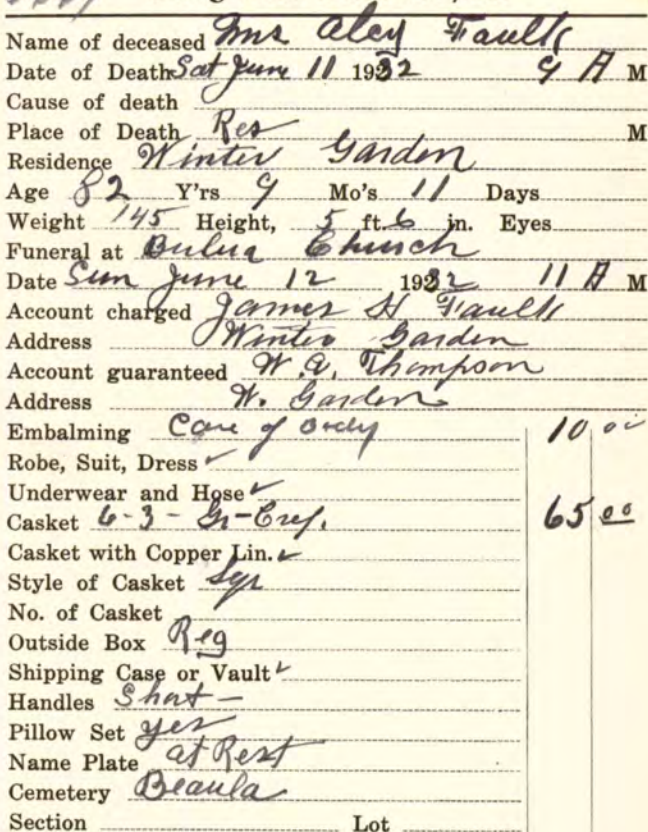 Name of deceased Mrs Aley Faulk
Date of Death Sat June 11 1932 9 A M
Cause of death
Place of Death Res M
Residence Winter Garden
Age 82 Y'rs 9 Mo's 11 Days
Weight 145 Height, 5 ft. 6 in. Eyes
Funeral at Bulua Church
Date Sun June 12 1932 11 A M
Account charged James H Faulk
Address Winter Garden
Account guaranteed W.A. Thompson
Address W. Garden
Embalming Care of Body 10 00
Robe, Suit, Dress ✓
Underwear and Hose ✓
Casket 6-3 - Gr-Crep. 65 00
Casket with Copper Lin. ✓
Style of Casket Sqr
No. of Casket
Outside Box Reg
Shipping Case or Vault ✓
Handles Short -
Pillow Set yes
Name Plate at Rest
Cemetery Beaula
Section Lot